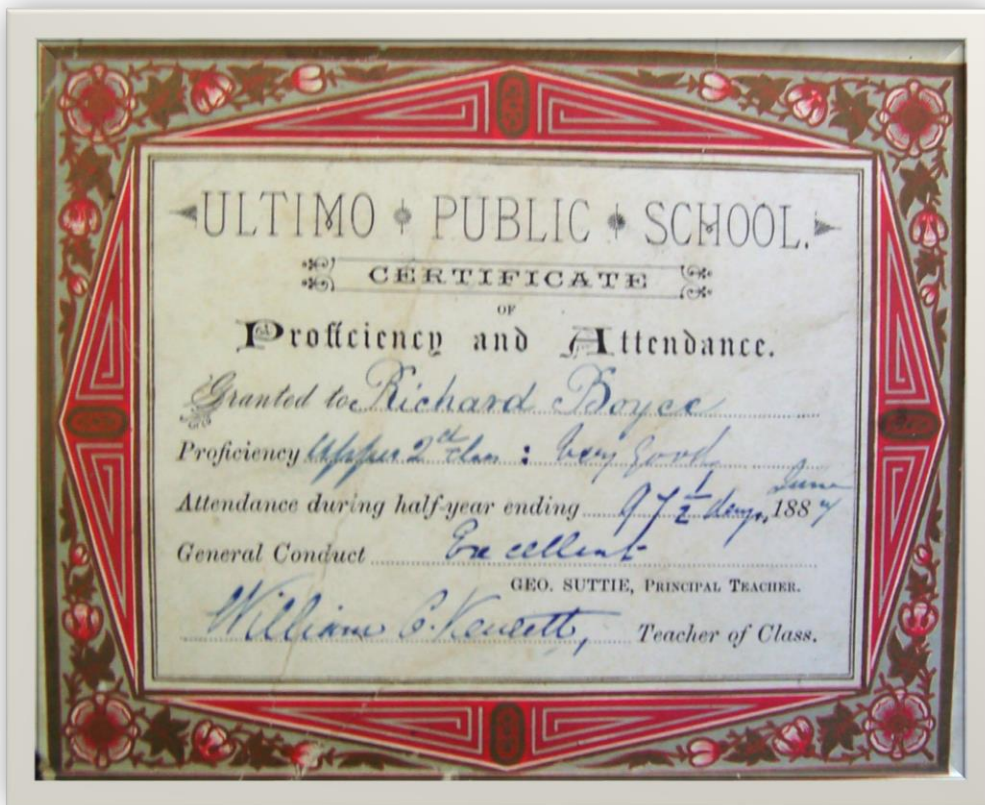 ULTIMO PUBLIC SCHOOL.
CERTIFICATE
OF
Proficiency and Attendance.
Granted to Richard Boyce
Proficiency Upper 2nd Class : Very Good
Attendance during half-year ending 97 1/2 days, June 188
General Conduct Excellent
GEO. SUTTIE, PRINCIPAL TEACHER.
William C. Teacher of Class.